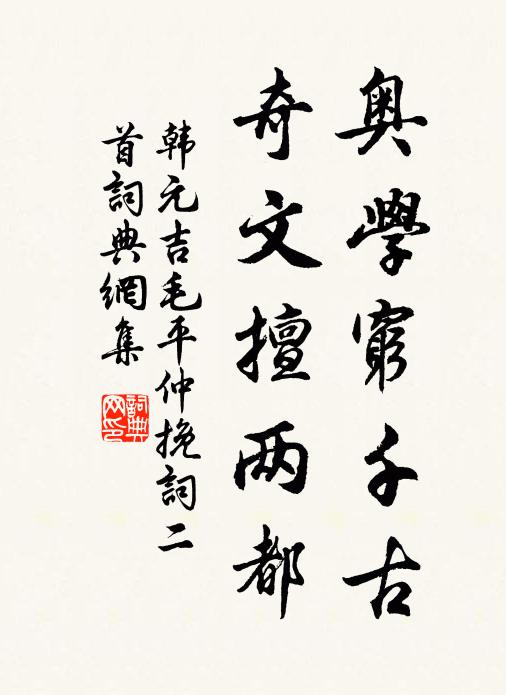 奥學窮千古
奇文擅两都
韩元吉毛平仲挽詞二
首詞典網集
詞典网印